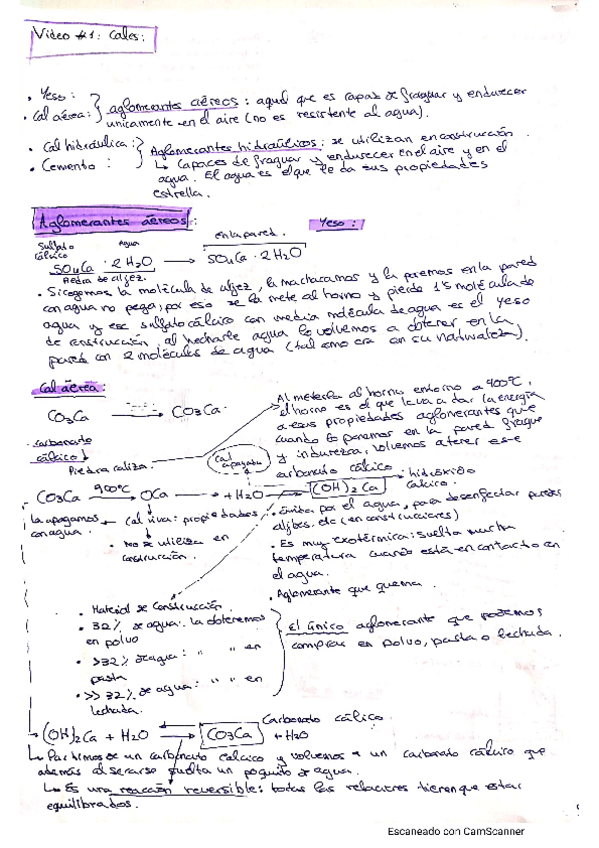 Video #1: Cales:
• Yeso:
• Cal aérea:
aglomerantes aéreos: aquel que es capaz de fraguar y endurecer
unicamente en el aire (no es resistente al agua).
• Cal hidráulica:
• Cemento:
Aglomerantes hidraúlicos: se utilizan en construcción.
↳ Capaces de fraguar y endurecer en el aire y en el
agua. El agua es el que le da sus propiedades
estrella.
Aglomerantes aéreos:
Yeso:
Sulfato
cálcico
Agua
en la pared.
SO4Ca · 2H2O → SO4Ca · 2H2O
Piedra de aljez.
• Si cogemos la molécula de aljez, la machacamos y la ponemos en la pared
con agua no pega; por eso se la mete al horno y pierde 1'5 molécula de
agua y ese sulfato cálcico con media molécula de agua es el yeso
de construcción, al hecharle agua lo volvemos a obtener en la
pared con 2 moléculas de agua (tal como era en su naturaleza).
Cal aérea:
CO3Ca → CO3Ca.
carbonato
cálcico
Piedra caliza.
Al meterla al horno entorno a 900ºC,
el horno es el que la va a dar la energía
a sus propiedades aglomerantes que
cuando lo ponemos en la pared fragua
y indureza, volvemos a tener ese
carbonato cálcico.
cal
apagada
hidróxido
cálcico.
CO3Ca 900ºC → OCa → + H2O → (OH)2Ca
la apagamos
con agua.
Cal viva: propiedades
• No se utiliza en
construcción.
• por el agua, para desenfectar
aljibes, etc (en construcciones)
• Es muy exotérmica: suelta mucha
temperatura cuando está en contacto en
el agua.
• Aglomerante que quema.
• Material de Construcción.
• 32% de agua: la obtenemos
en polvo
• >32% de agua: " " en
pasta
• >>32% de agua: " " en
lechada.
El único aglomerante que podemos
comprar en polvo, pasta o lechada.
Carbonato cálcico.
(OH)2Ca + H2O CO3Ca + H2O
↳ Partimos de un carbonato cálcico y volvemos a un carbonato cálcico que
además al secarse suelta un poquito de agua.
↳ Es una reacción reversible: todas las relaciones tienen que estar
equilibrados.
Escaneado con CamScanner